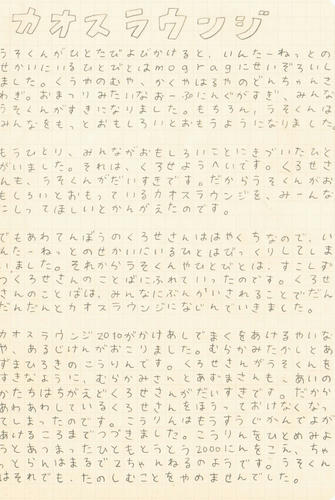 カオスラウンジ
うそくんがひとたびよびかけると、いんたーねっとの
せかいにいるひとびとはmogragにせいぞろいし
ました。くうやのむや、かくやはるやのどんちゃんさ
わぎ。おまつりみたいなおーぷにんぐがすぎ、みんな
うそくんがすきになりました。もちろん、うそくん
みんなをもっとおもしろいとおもうようになりました
もうひとり、みんながおもしろいことにきづいたひと
がいました。それは、くろせようへいです。くろせさ
んも、うそくんがだいすきです。だからうそくんがお
もしろいとおもっているカオスラウンジを、みーんな
にしってほしいとかんがえたのです。
でもあわてんぼうのくろせさんははやくちなので、い
んたーねっとのせかいにいるひとはびっくりしてしま
いました。それからうそくんやひとびとは、すこしず
つくろせさんのことばにふれていったのです。くろせ
さんのことばは、みんなにぶんかいされることでだん
だんとカオスラウンジになじんでいきました。
カオスラウンジ2010がかけあしでまくをあけるやいな
や、あるじけんがおこりました。むらかみたかしとあ
ずまひろきのこうりんです。くろせさんがうそくんを
すきなように、むらかみさんとあずまさんも、あいの
かたちはちがえどくろせさんがだいすきです。だから
あわあわしているくろせさんをほうっておけなくなっ
てしまったのです。こうりんはもうすうじかんでよが
あけるころまでつづきました。こうりんをひとめみよ
うとあつまったひともとうとう2000にんをこえ、ちゃ
っとらんはまるで2ちゃんねるのようです。うそくん
はそれでも、たのしむことをやめませんでした。